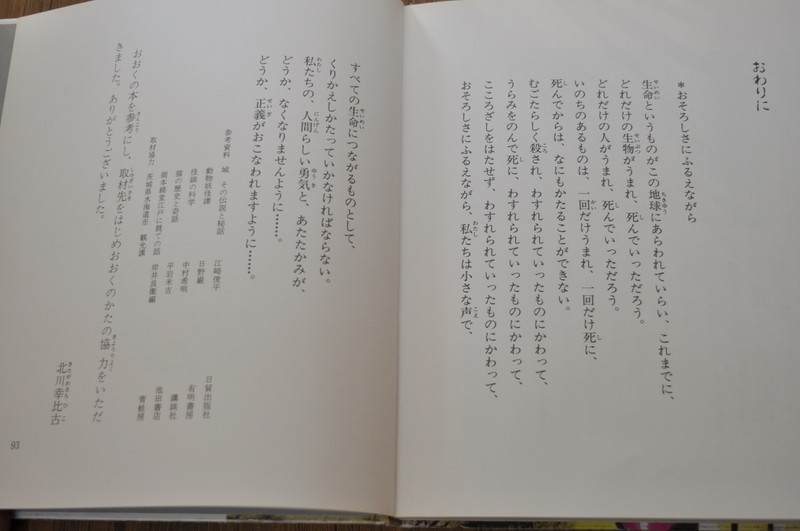 おわりに
*おそろしさにふるえながら
生命というものがこの地球にあらわれていらい、これまでに、
どれだけの生物がうまれ、死んでいっただろう。
どれだけの人がうまれ、死んでいっただろう。
いのちのあるものは、一回だけうまれ、一回だけ死に、
死んでからは、なにもかたることができない。
むごたらしく殺され、わすれられていったものにかわって、
うらみをのんで死に、わすれられていったものにかわって、
こころざしをはたせず、わすれられていったものにかわって、
おそろしさにふるえながら、私たちは小さな声で、
すべての生命につながるものとして、
くりかえしかたっていかなければならない。
私たちの、人間らしい勇気と、あたたかみが、
どうか、なくなりませんように……。
どうか、正義がおこなわれますように……。
参考資料 城 その伝説と秘話 江崎俊平 日貿出版社
動物妖怪譚 日野巌 有明書房
怪談の科学 中村希明 講談社
猫の歴史と奇話 平岩米吉 池田書店
岡本綺堂江戸に就ての話 岸井良衞編 青蛙房
取材協力 茨城県水海道市 観光課
おおくの本を参考にし、取材先をはじめおおくのかたの協力をいただ
きました。ありがとうございました。
北川幸比古
93